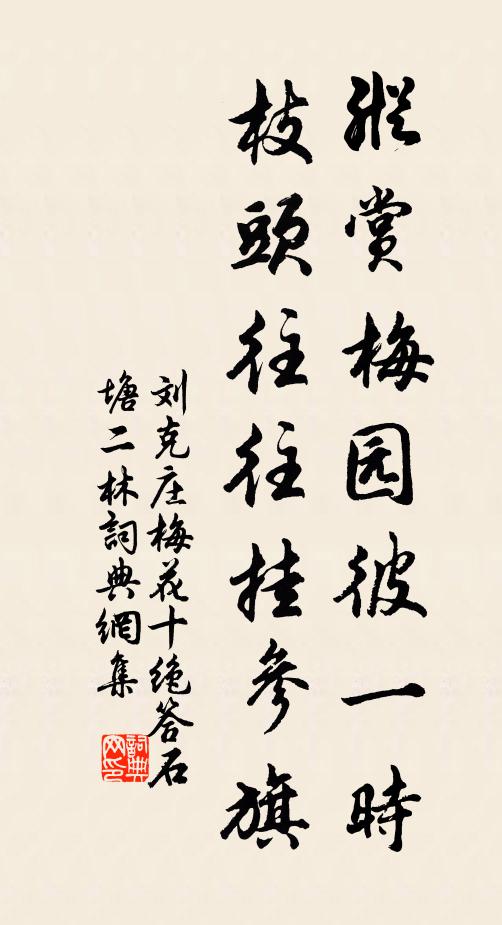 縱赏梅园彼一時
枝頭往往挂參旗
刘克庄梅花十绝答石
塘二林詞典網集
詞典网印